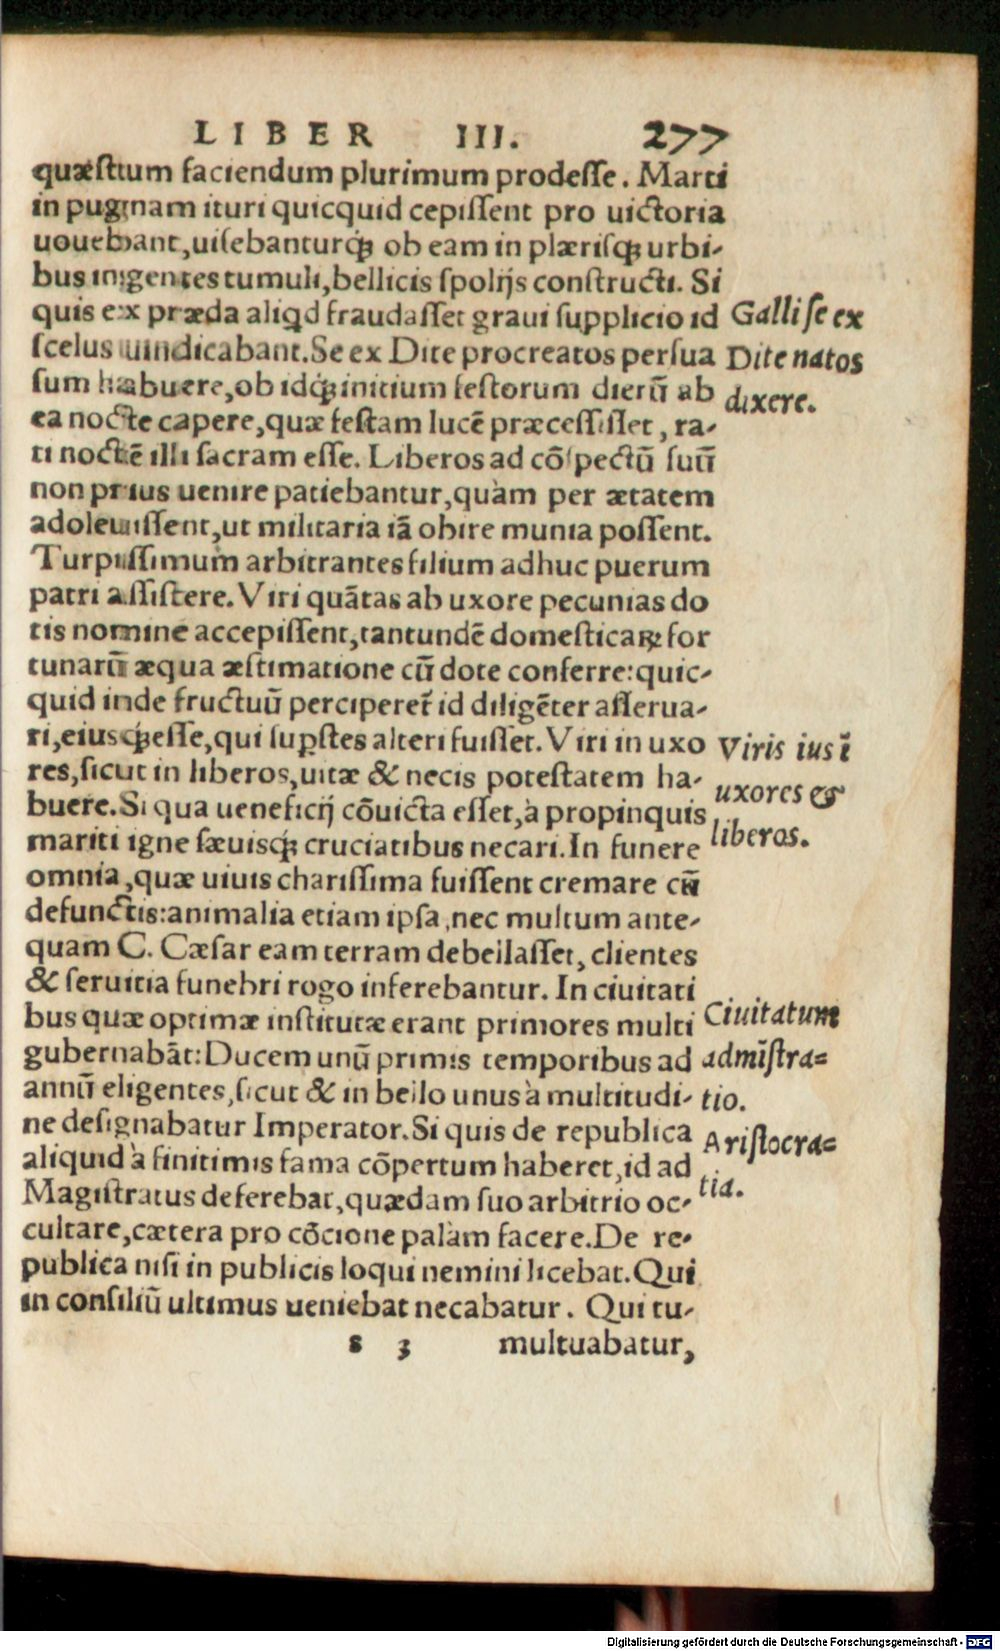 LIBER III. 277
quæstum faciendum plurimum prodeſſe. Marti
in pugnam ituri quicquid cepiſſent pro uictoria
uouebant, uiſebanturq́ꝫ ob eam in plæriſqꝫ urbi-
bus ingentes tumuli, bellicis ſpolijs conſtructi. Si
quis ex præda aliqd fraudaſſet graui ſupplicio id
ſcelus uindicabant. Se ex Dite procreatos perſua
ſum habuere, ob idq́ꝫ initium feſtorum dierū ab
ea nocte capere, quæ feſtam lucē præceſſiſſet, ra-
ti noctē illi ſacram eſſe. Liberos ad cōſpectū ſuū
non prius uenire patiebantur, quàm per ætatem
adoleuiſſent, ut militaria iā obire munia poſſent.
Turpiſſimum arbitrantes filium adhuc puerum
patri aſſiſtere. Viri quātas ab uxore pecunias do
tis nomine accepiſſent, tantundē domesticaꝝ for
tunarū æqua æſtimatione cū dote conferre: quic-
quid inde fructuū perciperet̃ id diligēter aſſerua-
ri, eiusq́ꝫ eſſe, qui suꝑſtes alteri fuiſſet. Viri in uxo
res, ſicut in liberos, uitæ & necis poteſtatem ha-
buere. Si qua ueneficij cōuicta eſſet, à propinquis
mariti igne ſæuisq́ꝫ cruciatibus necari. In funere
omnia, quæ uiuis chariſſima fuiſſent cremare cū
defunctis: animalia etiam ipſa, nec multum ante-
quam C. Cæſar eam terram debellaſſet, clientes
& ſeruitia funebri rogo inferebantur. In ciuitati
bus quæ optimæ inſtitutæ erant primores multi
gubernabāt: Ducem unū primis temporibus ad
annū eligentes, ſicut & in bello unus à multitudi-
ne deſignabatur Imperator. Si quis de republica
aliquid à finitimis fama cōpertum haberet, id ad
Magiſtratus deferebat, quædam ſuo arbitrio oc-
cultare, cætera pro cōcione palàm facere. De re-
publica niſi in publicis loqui nemini licebat. Qui
in conſiliū ultimus ueniebat necabatur. Qui tu-
s 3 multuabatur,
Galli ſe ex
Dite natos
dixere.
Viris ius ī
uxores &
liberos.
Ciuitatum
admīſtra=
tio.
Ariſtocra=
tia.
Digitalisierung gefördert durch die Deutsche Forschungsgemeinschaft - DFG